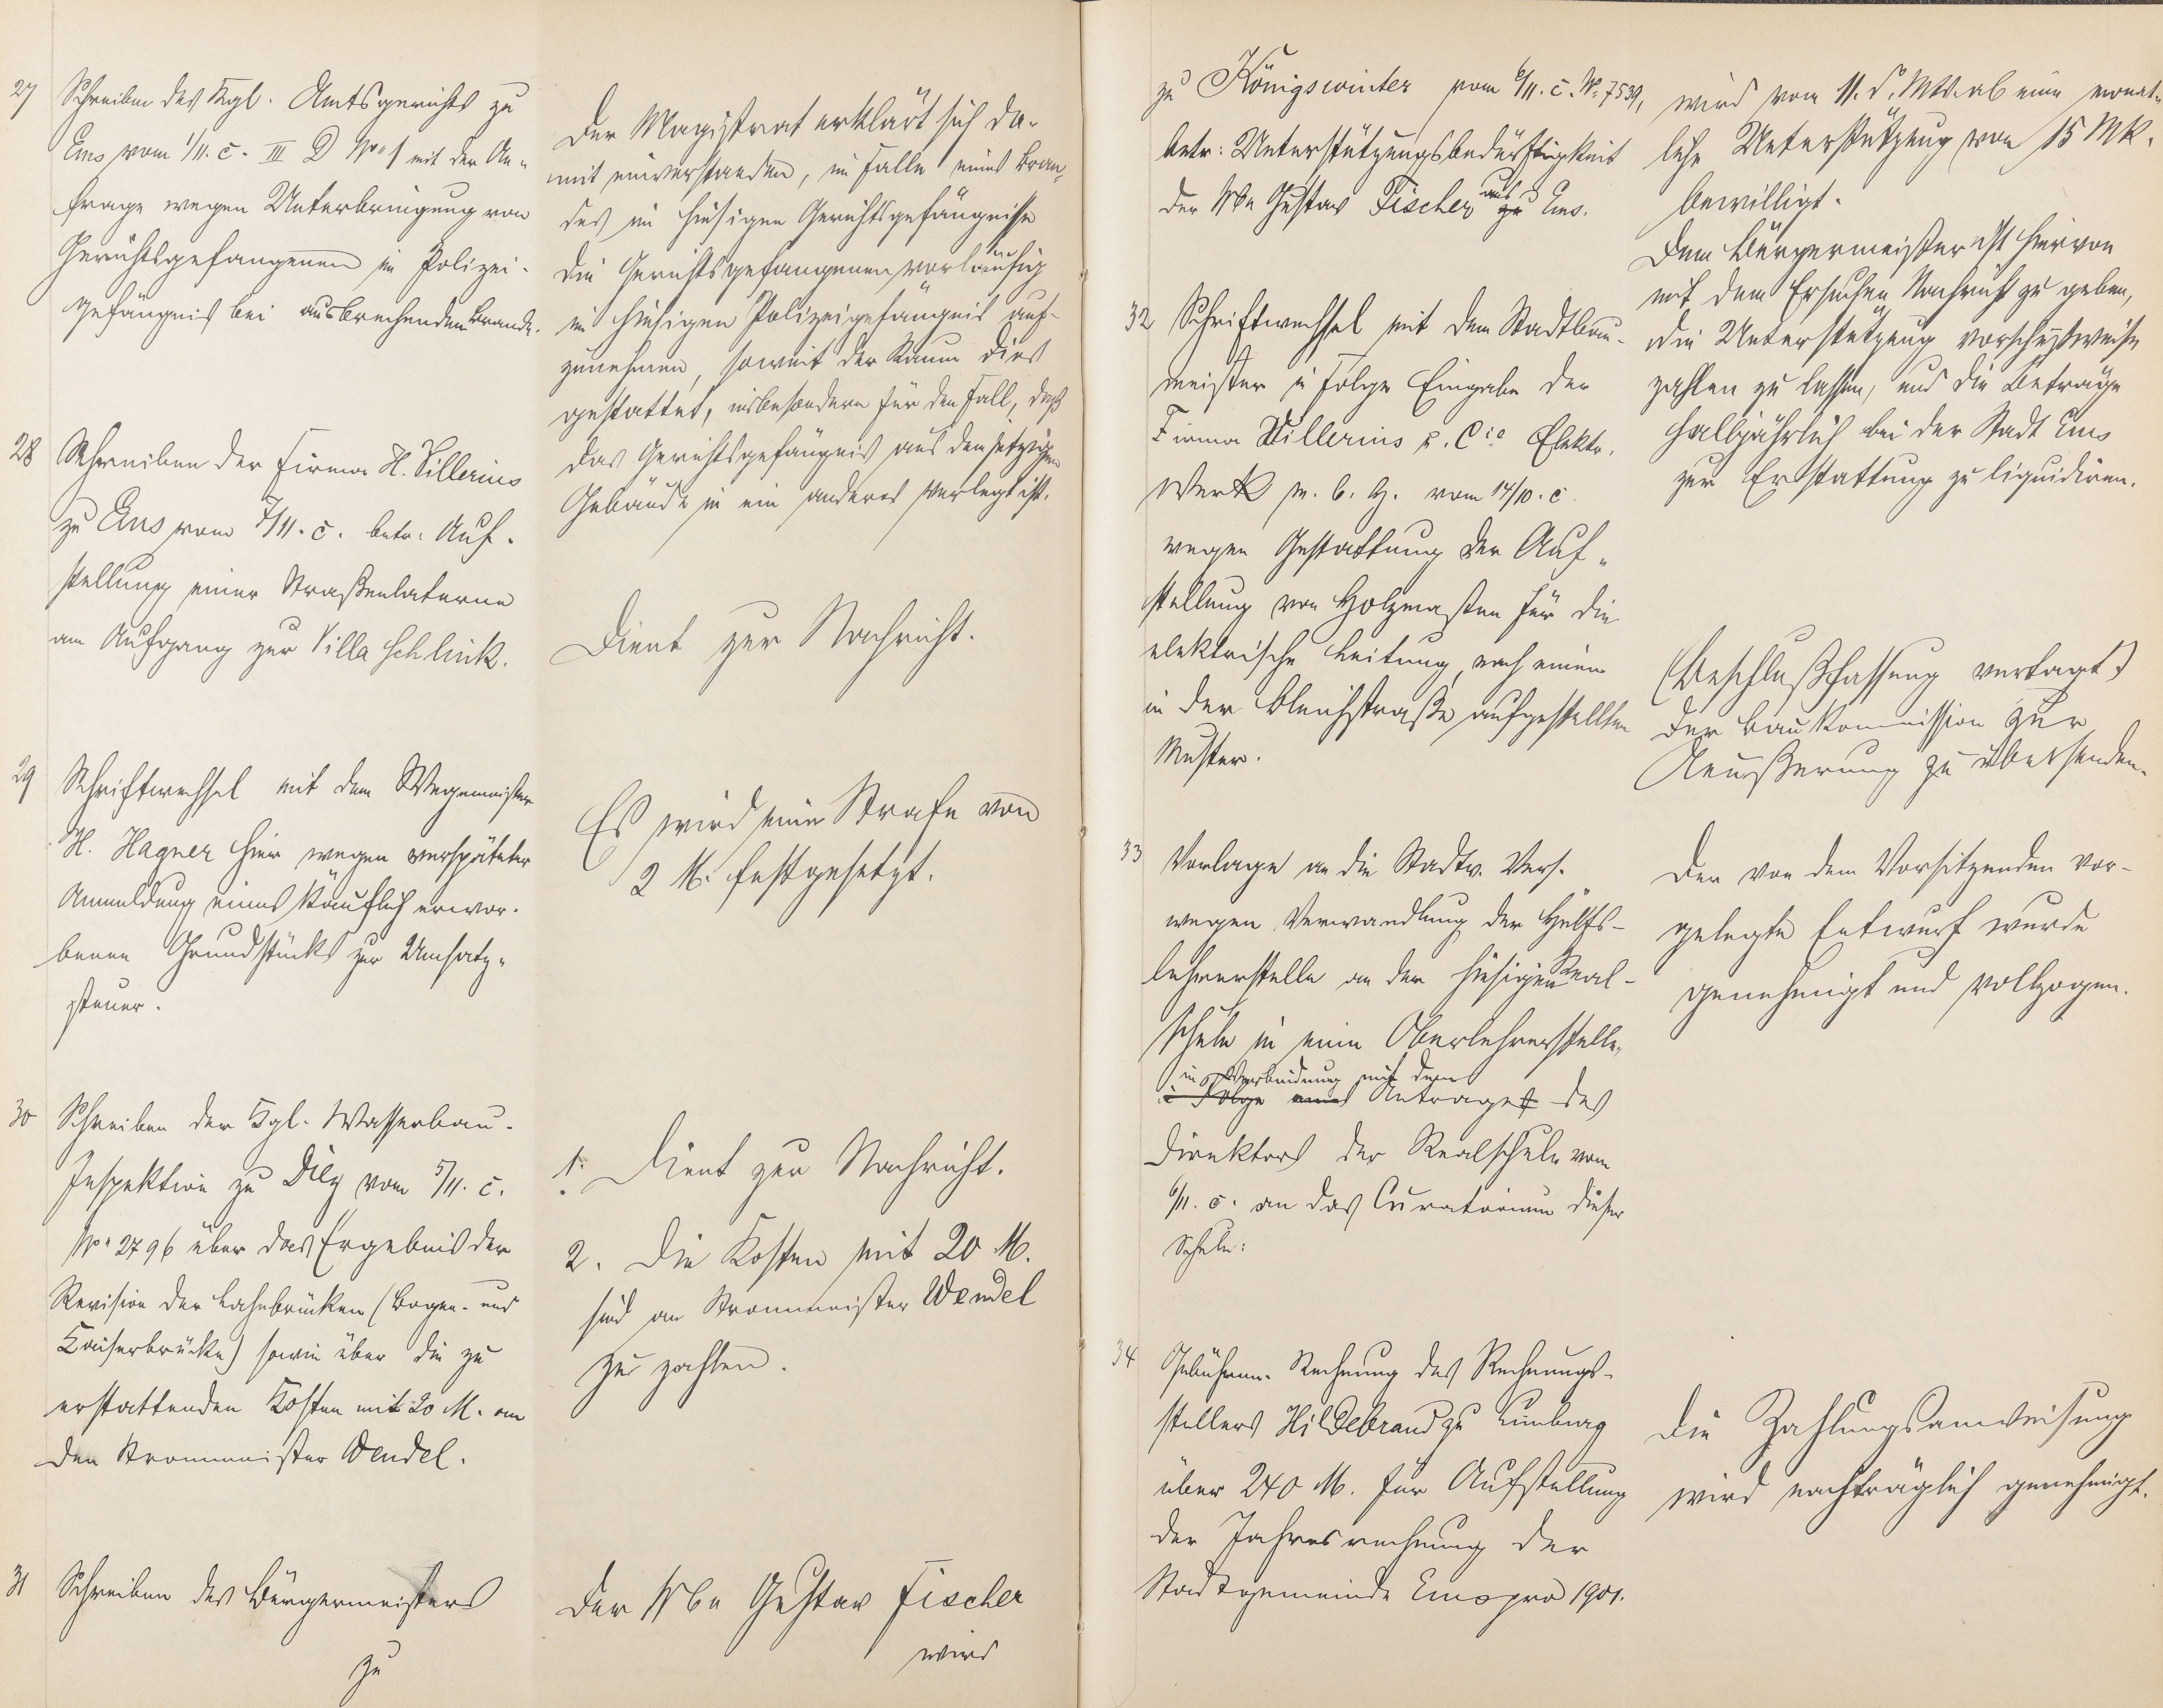 27
Schreiben des Kgl. Amtsgerichts zu
Ems vom 1/11. c. III D No 1 mit der An-
frage wegen Unterbringung von
Gerichtsgefangenen in Polizei-
gefängnis bei ausbrechendem Brande.
Der Magistrat erklärt sich da-
mit einverstanden, im Falle eines Bran-
des im hiesigen Gerichtsgefängnisse
die Gerichtsgefangenen vorläufig
im hiesigen Polizeigefängnis auf-
zunehmen, soweit der Raum dies
gestattet, insbesondere für den Fall, daß
das Gerichtsgefängnis aus dem jetzigen
Gebäude in ein anderes verlegt ist.
28
Schreiben der Firma H. Villerius
zu Ems vom 7/11. c. betr: Auf-
stellung einer Straßenlaterne
am Aufgang zur Villa Schlink.
Dient zur Nachricht.
29
Schriftwechsel mit dem Wegemeister
H. Hagner hier wegen verspäteter
Anmeldung eines käuflich erwor-
benen Grundstücks zur Umsatz-
steuer.
Es wird eine Strafe von
2 M. festgesetzt.
30
Schreiben der Kgl. Wasserbau-
Inspektion zu Diez vom 5/11. c.
No 2796 über das Ergebnis der
Revision der Lahnbrücken (Bogen- und
Kaiserbrücke) sowie über die zu
erstattenden Kosten mit 20 M. an
den Strommeister Wendel.
1. Dient zur Nachricht.
2. Die Kosten mit 20 M.
sind an Strommeister Wendel
zu zahlen.
31
Schreiben des Bürgermeisters
zu
Der Wwe Gustav Fischer
wird
zu Königswinter vom 6/11. c. No 7539,
betr: Unterstützungsbedürftigkeit
der Wwe Gustav Fischer aus zu Ems.
wird vom 11. d. Mts. ab eine monat-
liche Unterstützung von 15 Mk.
bewilligt.
Dem Bürgermeister ist hiervon
mit dem Ersuchen Nachricht zu geben,
die Unterstützung vorschußweise
zahlen zu lassen, und die Beträge
halbjährlich bei der Stadt Ems
zur Erstattung zu liquidiren.
32
Schriftwechsel mit dem Stadtbau-
meister in Folge Eingabe der
Firma Villerius u. Cie Elektr.
Werk m. b. H. vom 14/10. c.
wegen Gestattung der Auf-
stellung von Holzmasten für die
elektrische Leitung, nach einem
in der Bleichstraße aufgestellten
Muster.
(Beschlußfassung vertagt)
Der Baukommission zur
Aeußerung zu übersenden.
33
Vorlage an die Stadtv. Vers.
wegen Verwandlung der Hülfs-
lehrerstelle an der hiesigen Real-
schule in eine Oberlehrerstelle,
in Verbindung mit dem
in Folge eines Antrages des
Direktors der Realschule vom
6/11. c. an das Curatorium dieser
Schule.
Der von dem Vorsitzenden vor-
gelegte Entwurf wurde
genehmigt und vollzogen.
34
Gebühren-Rechnung des Rechnungs-
stellers Hildebrand zu Limburg
über 240 M. für Aufstellung
der Jahresrechnung der
Stadtgemeinde Ems pro 1901.
Die Zahlungsanweisung
wird nachträglich genehmigt.